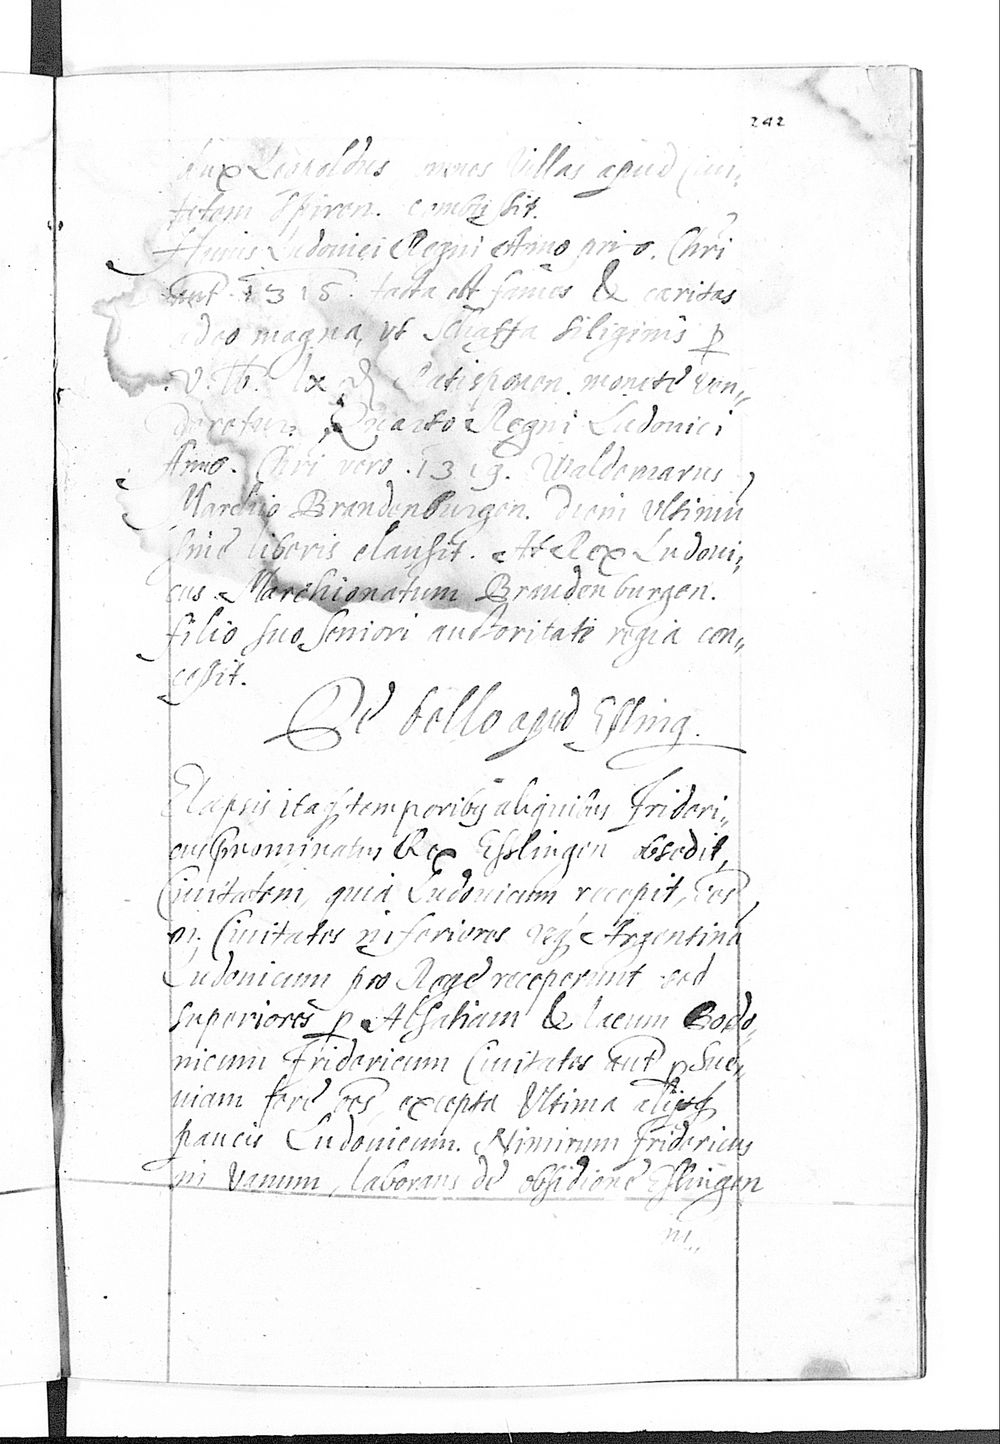 242
dux Leopoldus omnes Villas apud Ciui„
tatem Spiren. combussit.
Huius Ludouici Regni Anno primo. Chri
aut. 1315. facta est fames & caritas
adeo magna, vt Schaffa siliginis p
.v. lb. lx ₰ Ratisponen. monete ven„
deretur. Quarto Regni Ludouici
Anno. Chri vero .1319. Waldemarus
Marchio Brandenburgen. Diem Vltimū
sine liberis clausit. At Rex Ludoui„
cus Marchionatum Brandenburgen.
filio suo seniori auctoritate regia con„
cessit.
De bello apud Essling.
Elapsis itaq temporibq aliquibus Frideri„
cus prenominatus Rex Esslingen obsedit,
Ciuitatem, quia Ludouicum recepit, oēs
Ciuitates inferiores vsq Argentina
Ludouicum pro Rege receperunt sed
superiores p Alsatiam & lacum Bodo„
nicum Fridericum Ciuitates aut p Sue„
uiam fere oēs, excepta Vltima alijsq
paucis Ludouicum. Nimirum Fridericus
in vanum, laborans de obsidione Esslingen
in„